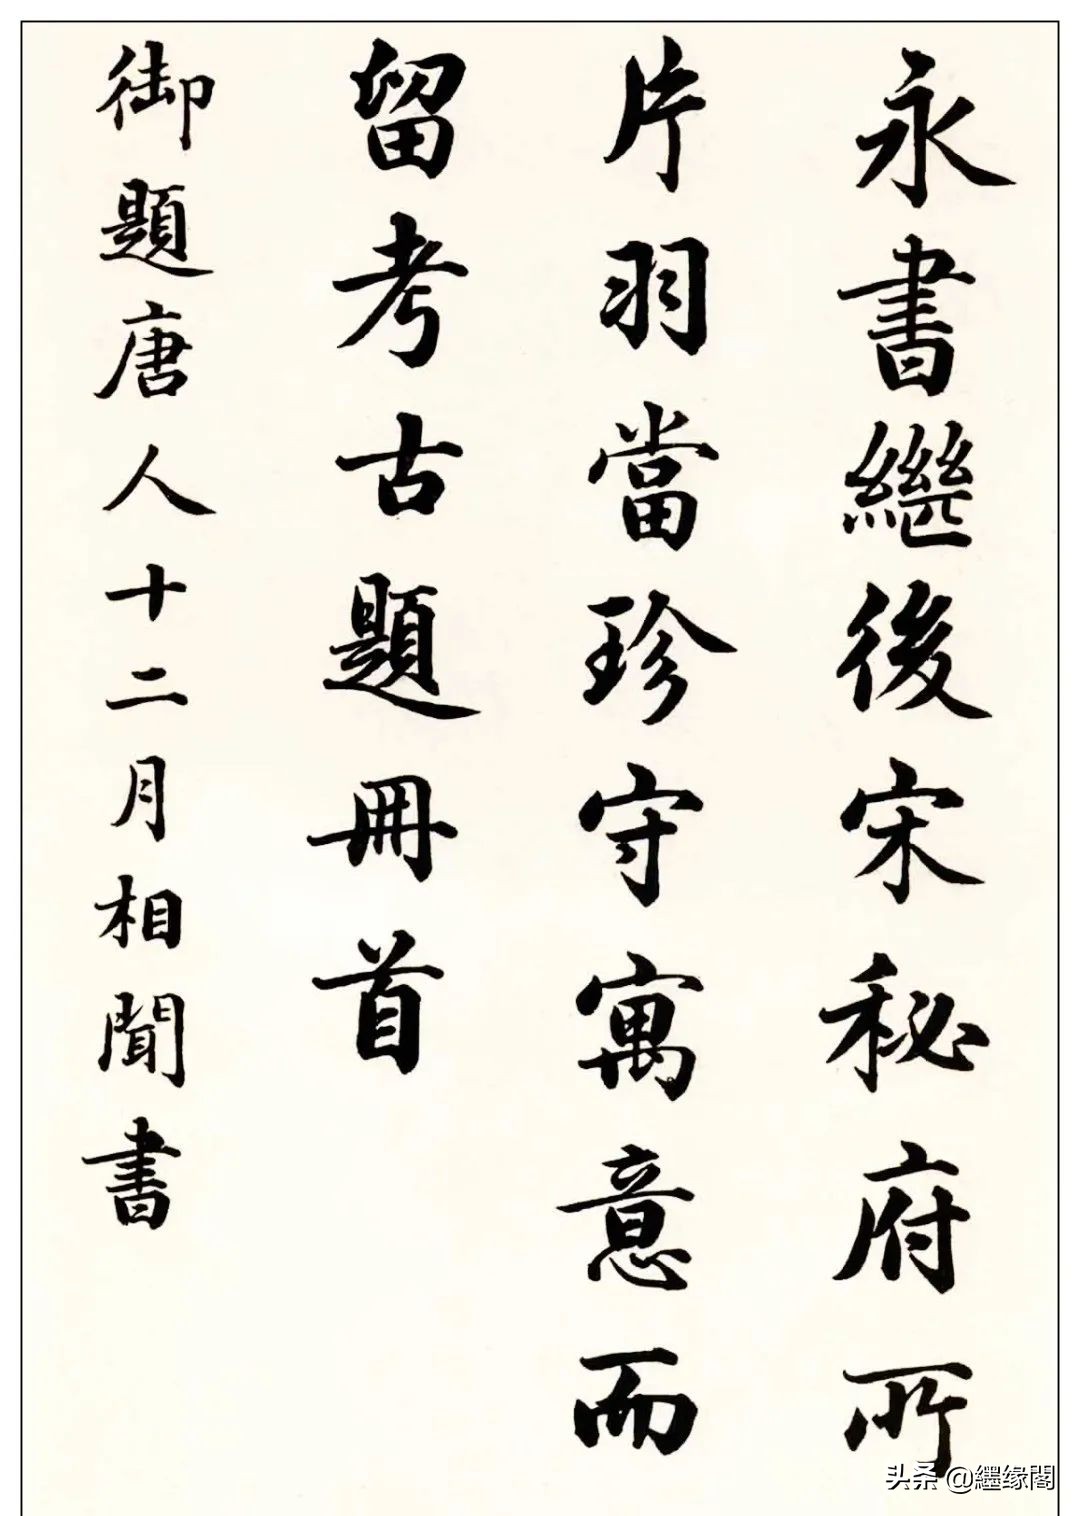 永書繼後宋秘府所
片羽當珍守寓意而
留考古題冊首
御題唐人十二月相聞書
头条 @纆缘閣